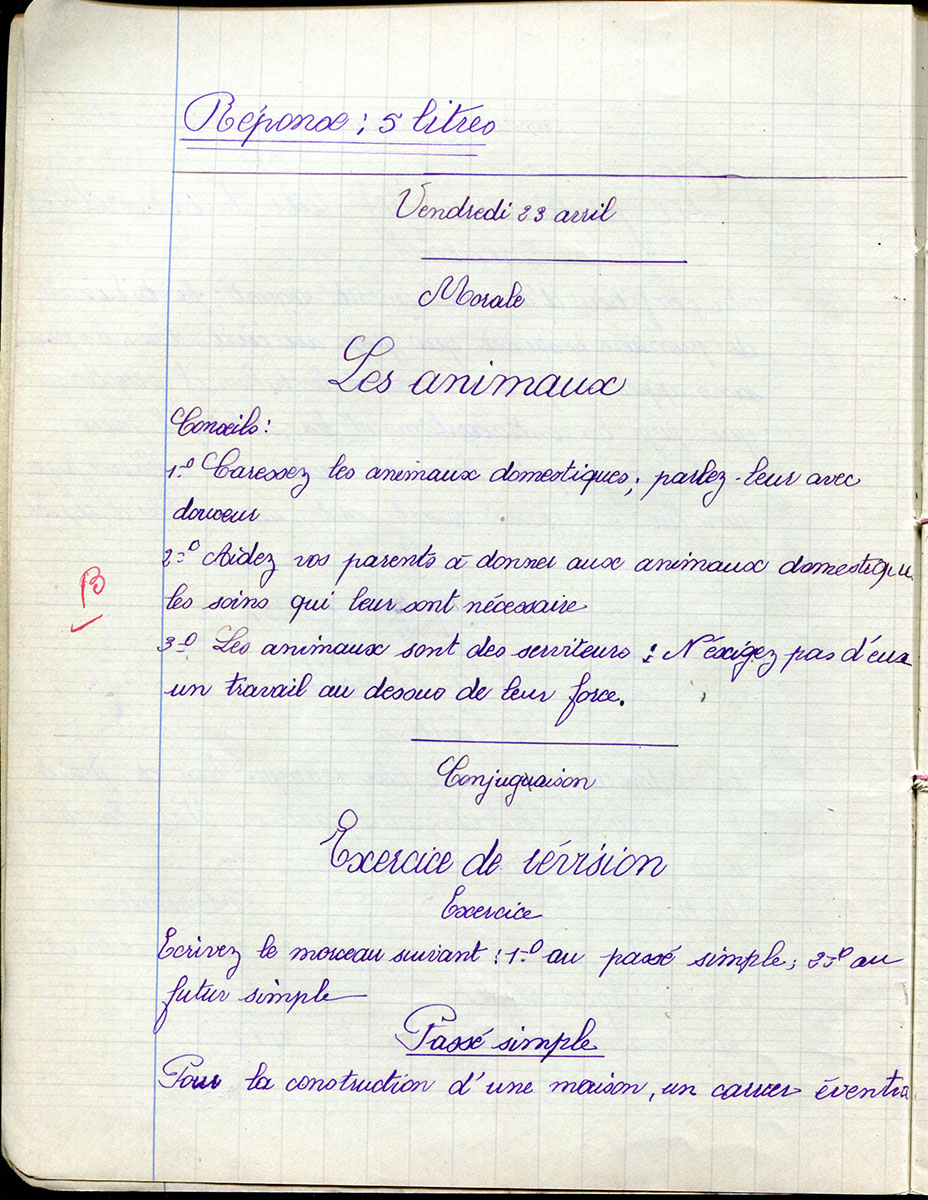 Réponse : 5 litres
Vendredi 23 avril
Morale
Les animaux
Conseils :
1-º Caressez les animaux domestiques ; parlez-leur avec
douceur
2-º Aidez vos parents à donner aux animaux domestiqu
les soins qui leur sont nécessaire
3-º Les animaux sont des serviteurs : N'éxigez pas d'eux
un travail au dessous de leur force.
B
Conjuguaison
Exercice de révision
Exercice
Ecrivez le morceau suivant : 1-º au passé simple ; 2-º au
futur simple
Passé simple
Pour la construction d'une maison, un carrier éventra